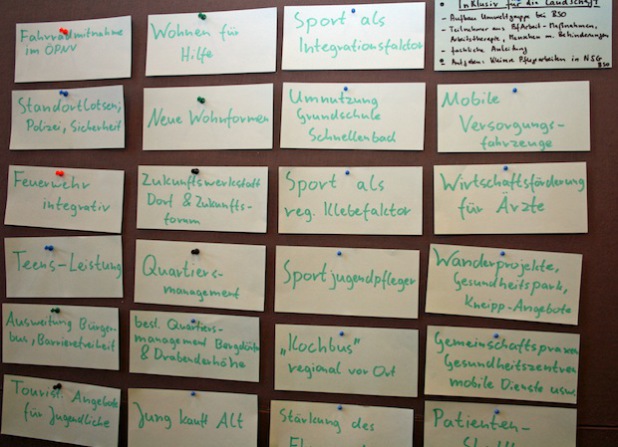 Fahrradmitnahme
im ÖPNV
Wohnen für
Hilfe
Sport als
Integrationsfaktor
Inklusiv für die Landschaft
- Aufbau Umweltgruppe bei BSO
- Teilnehmer aus BfArbeit-Maßnahmen,
Arbeitstherapie, Menschen m. Behinderungen
- fachliche Anleitung
Aufgaben: kleinere Pflegearbeiten in NSG
BSO
Standortlotsen;
Polizei, Sicherheit
Neue Wohnformen
Umnutzung
Grundschule
Schnellenbach
Mobile
Versorgungs-
fahrzeuge
Feuerwehr
integrativ
Zukunftswerkstatt
Dorf & Zukunfts-
forum
Sport als
reg. Klebefaktor
Wirtschaftsförderung
für Ärzte
Teens-Leistung
Quartiers-
management
Sportjugendpfleger
Wanderprojekte,
Gesundheitspark,
Kneipp-Angebote
Ausweitung Bürger-
bus, Barrierefreiheit
besl. Quartiers-
management Bergdörfer
& Drabenderhöhe
„Kochbus"
regional vor Ort
Gemeinschaftspraxen
Gesundheitszentren
mobile Dienste usw.
Tourist. Angebote
für Jugendliche
Jung kauft Alt
Stärkung des
Patienten-